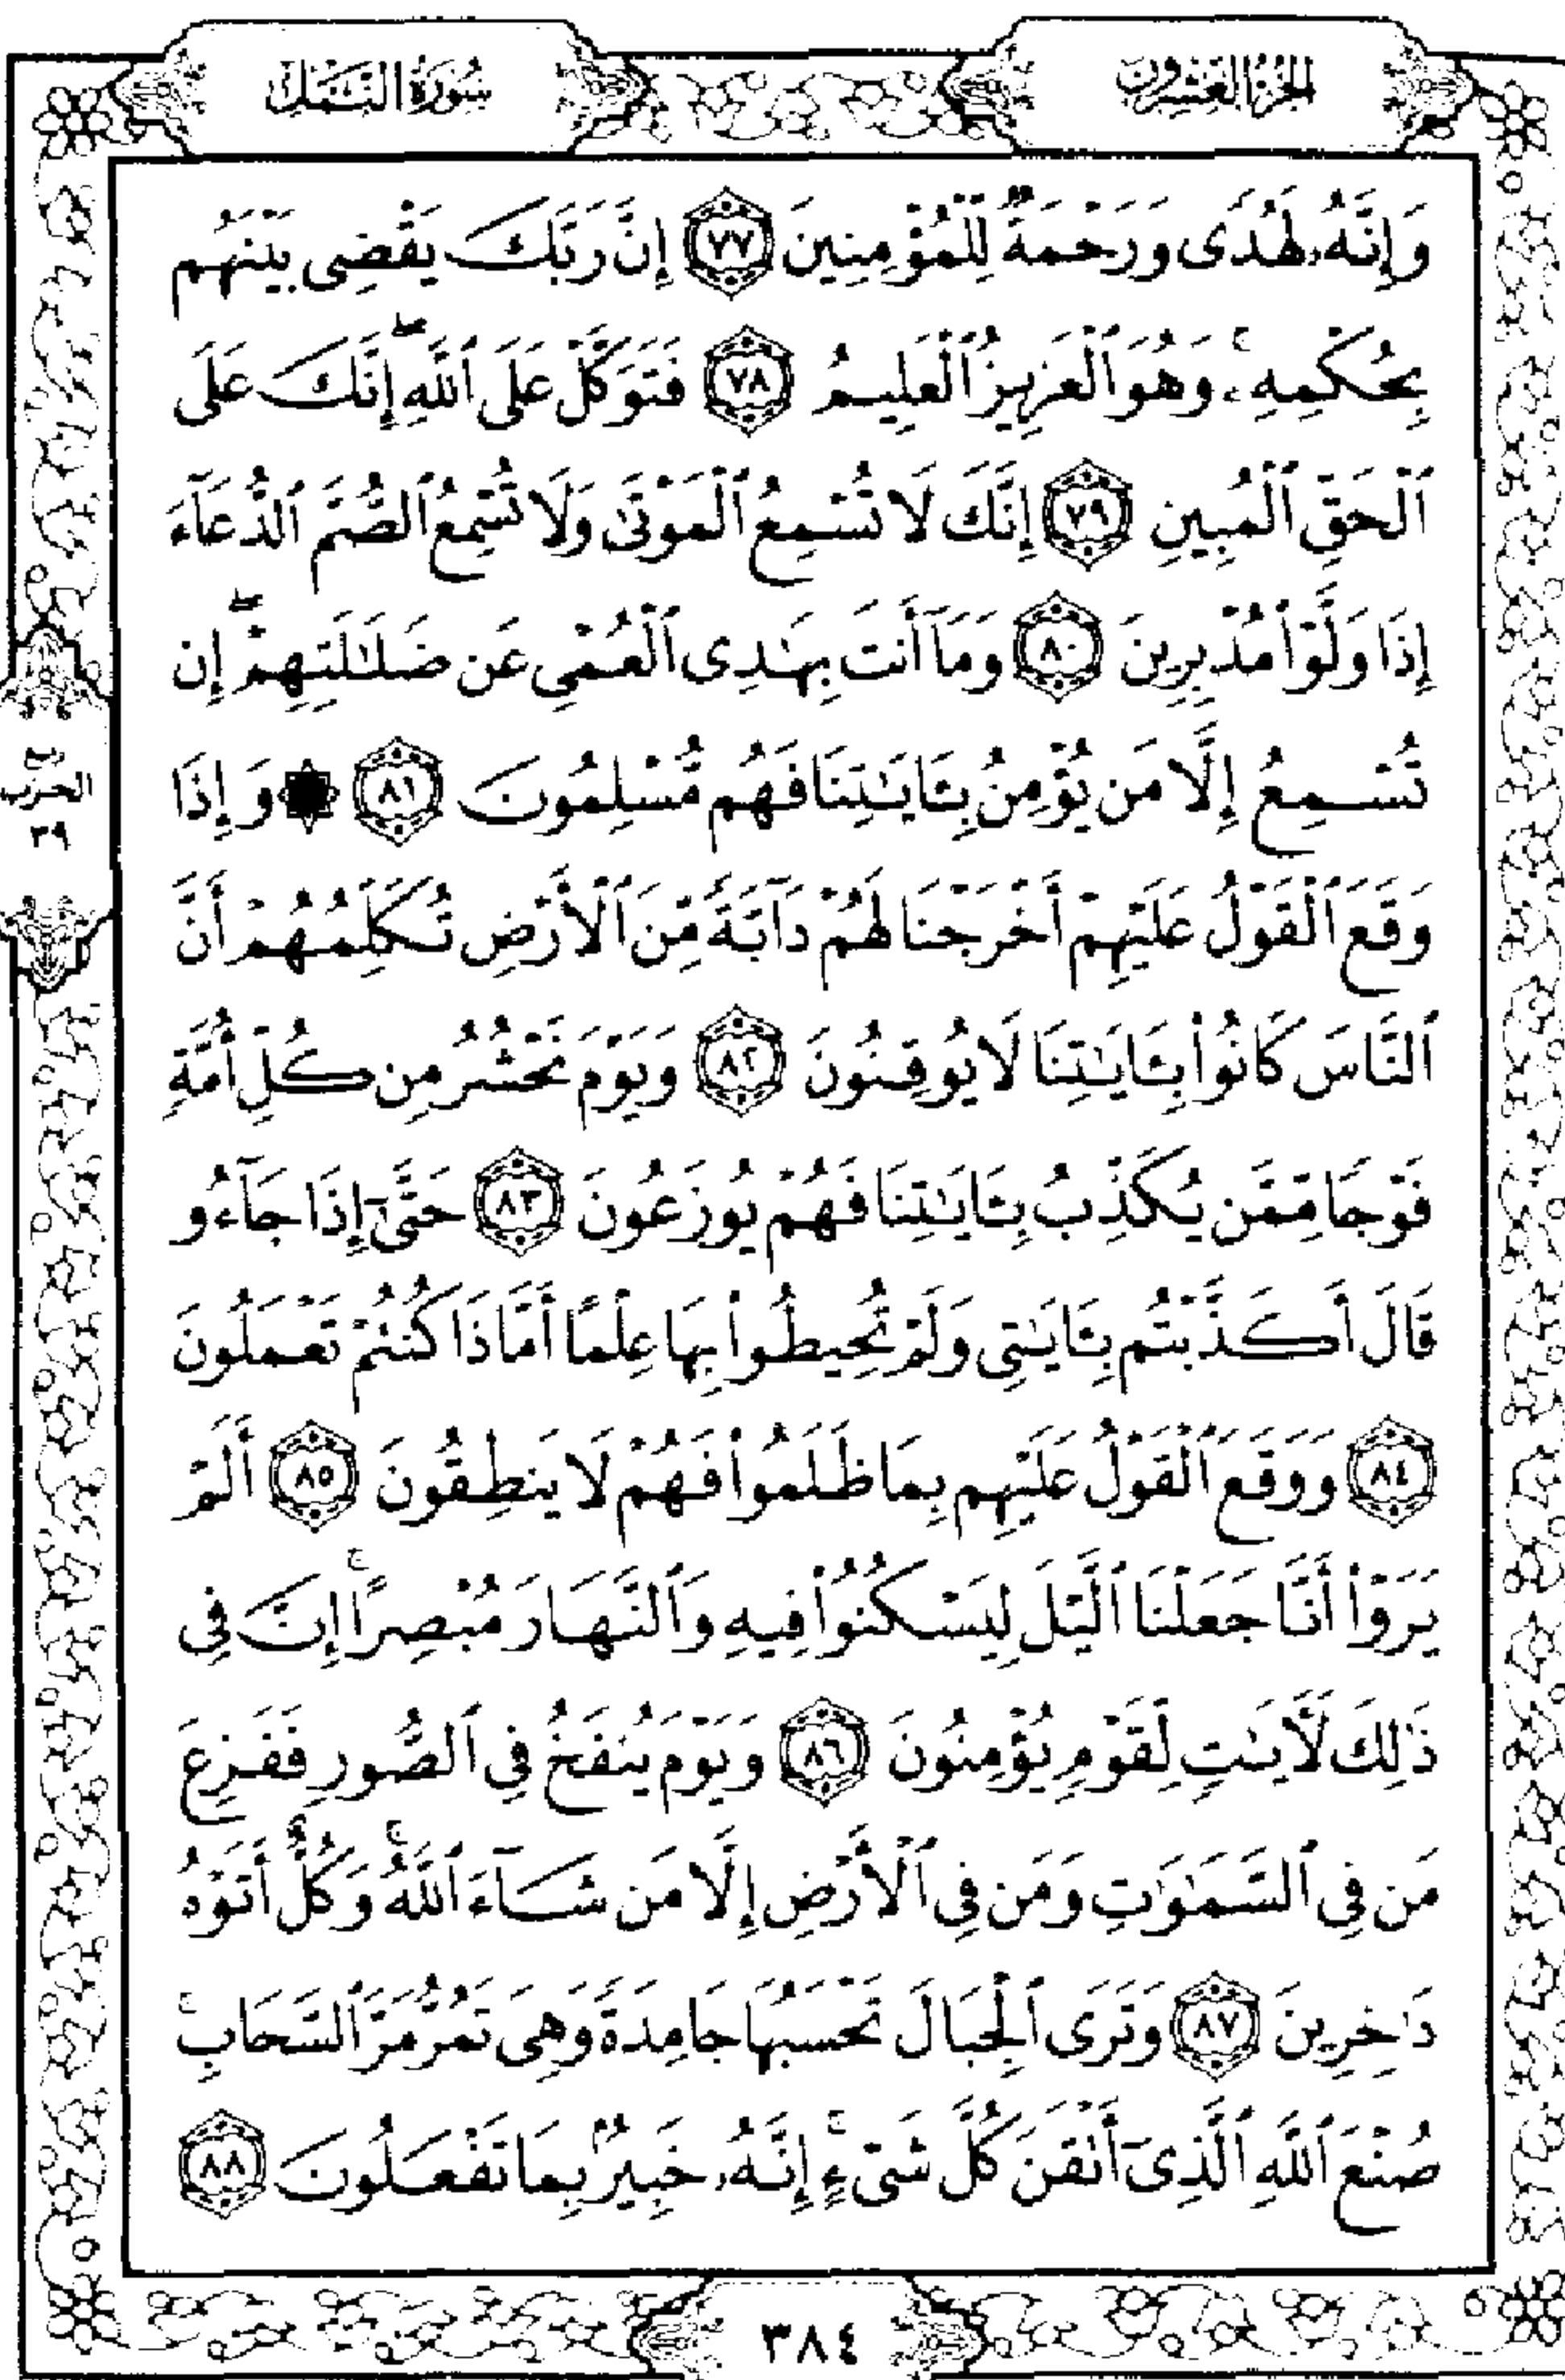 الجزء العشرون
سورة النمل
وَإِنَّهُۥ لَهُدًى وَرَحْمَةٌ لِّلْمُؤْمِنِينَ ٧٧ إِنَّ رَبَّكَ يَقْضِى بَيْنَهُم
بِحُكْمِهِۦۚ وَهُوَ ٱلْعَزِيزُ ٱلْعَلِيمُ ٧٨ فَتَوَكَّلْ عَلَى ٱللَّهِۖ إِنَّكَ عَلَى
ٱلْحَقِّ ٱلْمُبِينِ ٧٩ إِنَّكَ لَا تُسْمِعُ ٱلْمَوْتَىٰ وَلَا تُسْمِعُ ٱلصُّمَّ ٱلدُّعَآءَ
إِذَا وَلَّوْا۟ مُدْبِرِينَ ٨٠ وَمَآ أَنتَ بِهَـٰدِى ٱلْعُمْىِ عَن ضَلَـٰلَتِهِمْۖ إِن
تُسْمِعُ إِلَّا مَن يُؤْمِنُ بِـَٔايَـٰتِنَا فَهُم مُّسْلِمُونَ ٨١ ۞ وَإِذَا
وَقَعَ ٱلْقَوْلُ عَلَيْهِمْ أَخْرَجْنَا لَهُمْ دَآبَّةً مِّنَ ٱلْأَرْضِ تُكَلِّمُهُمْ أَنَّ
ٱلنَّاسَ كَانُوا۟ بِـَٔايَـٰتِنَا لَا يُوقِنُونَ ٨٢ وَيَوْمَ نَحْشُرُ مِن كُلِّ أُمَّةٍ
فَوْجًا مِّمَّن يُكَذِّبُ بِـَٔايَـٰتِنَا فَهُمْ يُوزَعُونَ ٨٣ حَتَّىٰٓ إِذَا جَآءُو
قَالَ أَكَذَّبْتُم بِـَٔايَـٰتِى وَلَمْ تُحِيطُوا۟ بِهَا عِلْمًا أَمَّاذَا كُنتُمْ تَعْمَلُونَ
٨٤ وَوَقَعَ ٱلْقَوْلُ عَلَيْهِم بِمَا ظَلَمُوا۟ فَهُمْ لَا يَنطِقُونَ ٨٥ أَلَمْ
يَرَوْا۟ أَنَّا جَعَلْنَا ٱلَّيْلَ لِيَسْكُنُوا۟ فِيهِ وَٱلنَّهَارَ مُبْصِرًاۚ إِنَّ فِى
ذَٰلِكَ لَـَٔايَـٰتٍ لِّقَوْمٍ يُؤْمِنُونَ ٨٦ وَيَوْمَ يُنفَخُ فِى ٱلصُّورِ فَفَزِعَ
مَن فِى ٱلسَّمَـٰوَٰتِ وَمَن فِى ٱلْأَرْضِ إِلَّا مَن شَآءَ ٱللَّهُۚ وَكُلٌّ أَتَوْهُ
دَٰخِرِينَ ٨٧ وَتَرَى ٱلْجِبَالَ تَحْسَبُهَا جَامِدَةً وَهِىَ تَمُرُّ مَرَّ ٱلسَّحَابِۚ
صُنْعَ ٱللَّهِ ٱلَّذِىٓ أَتْقَنَ كُلَّ شَىْءٍۚ إِنَّهُۥ خَبِيرٌۢ بِمَا تَفْعَلُونَ ٨٨
الحزب
٣٩
٣٨٤